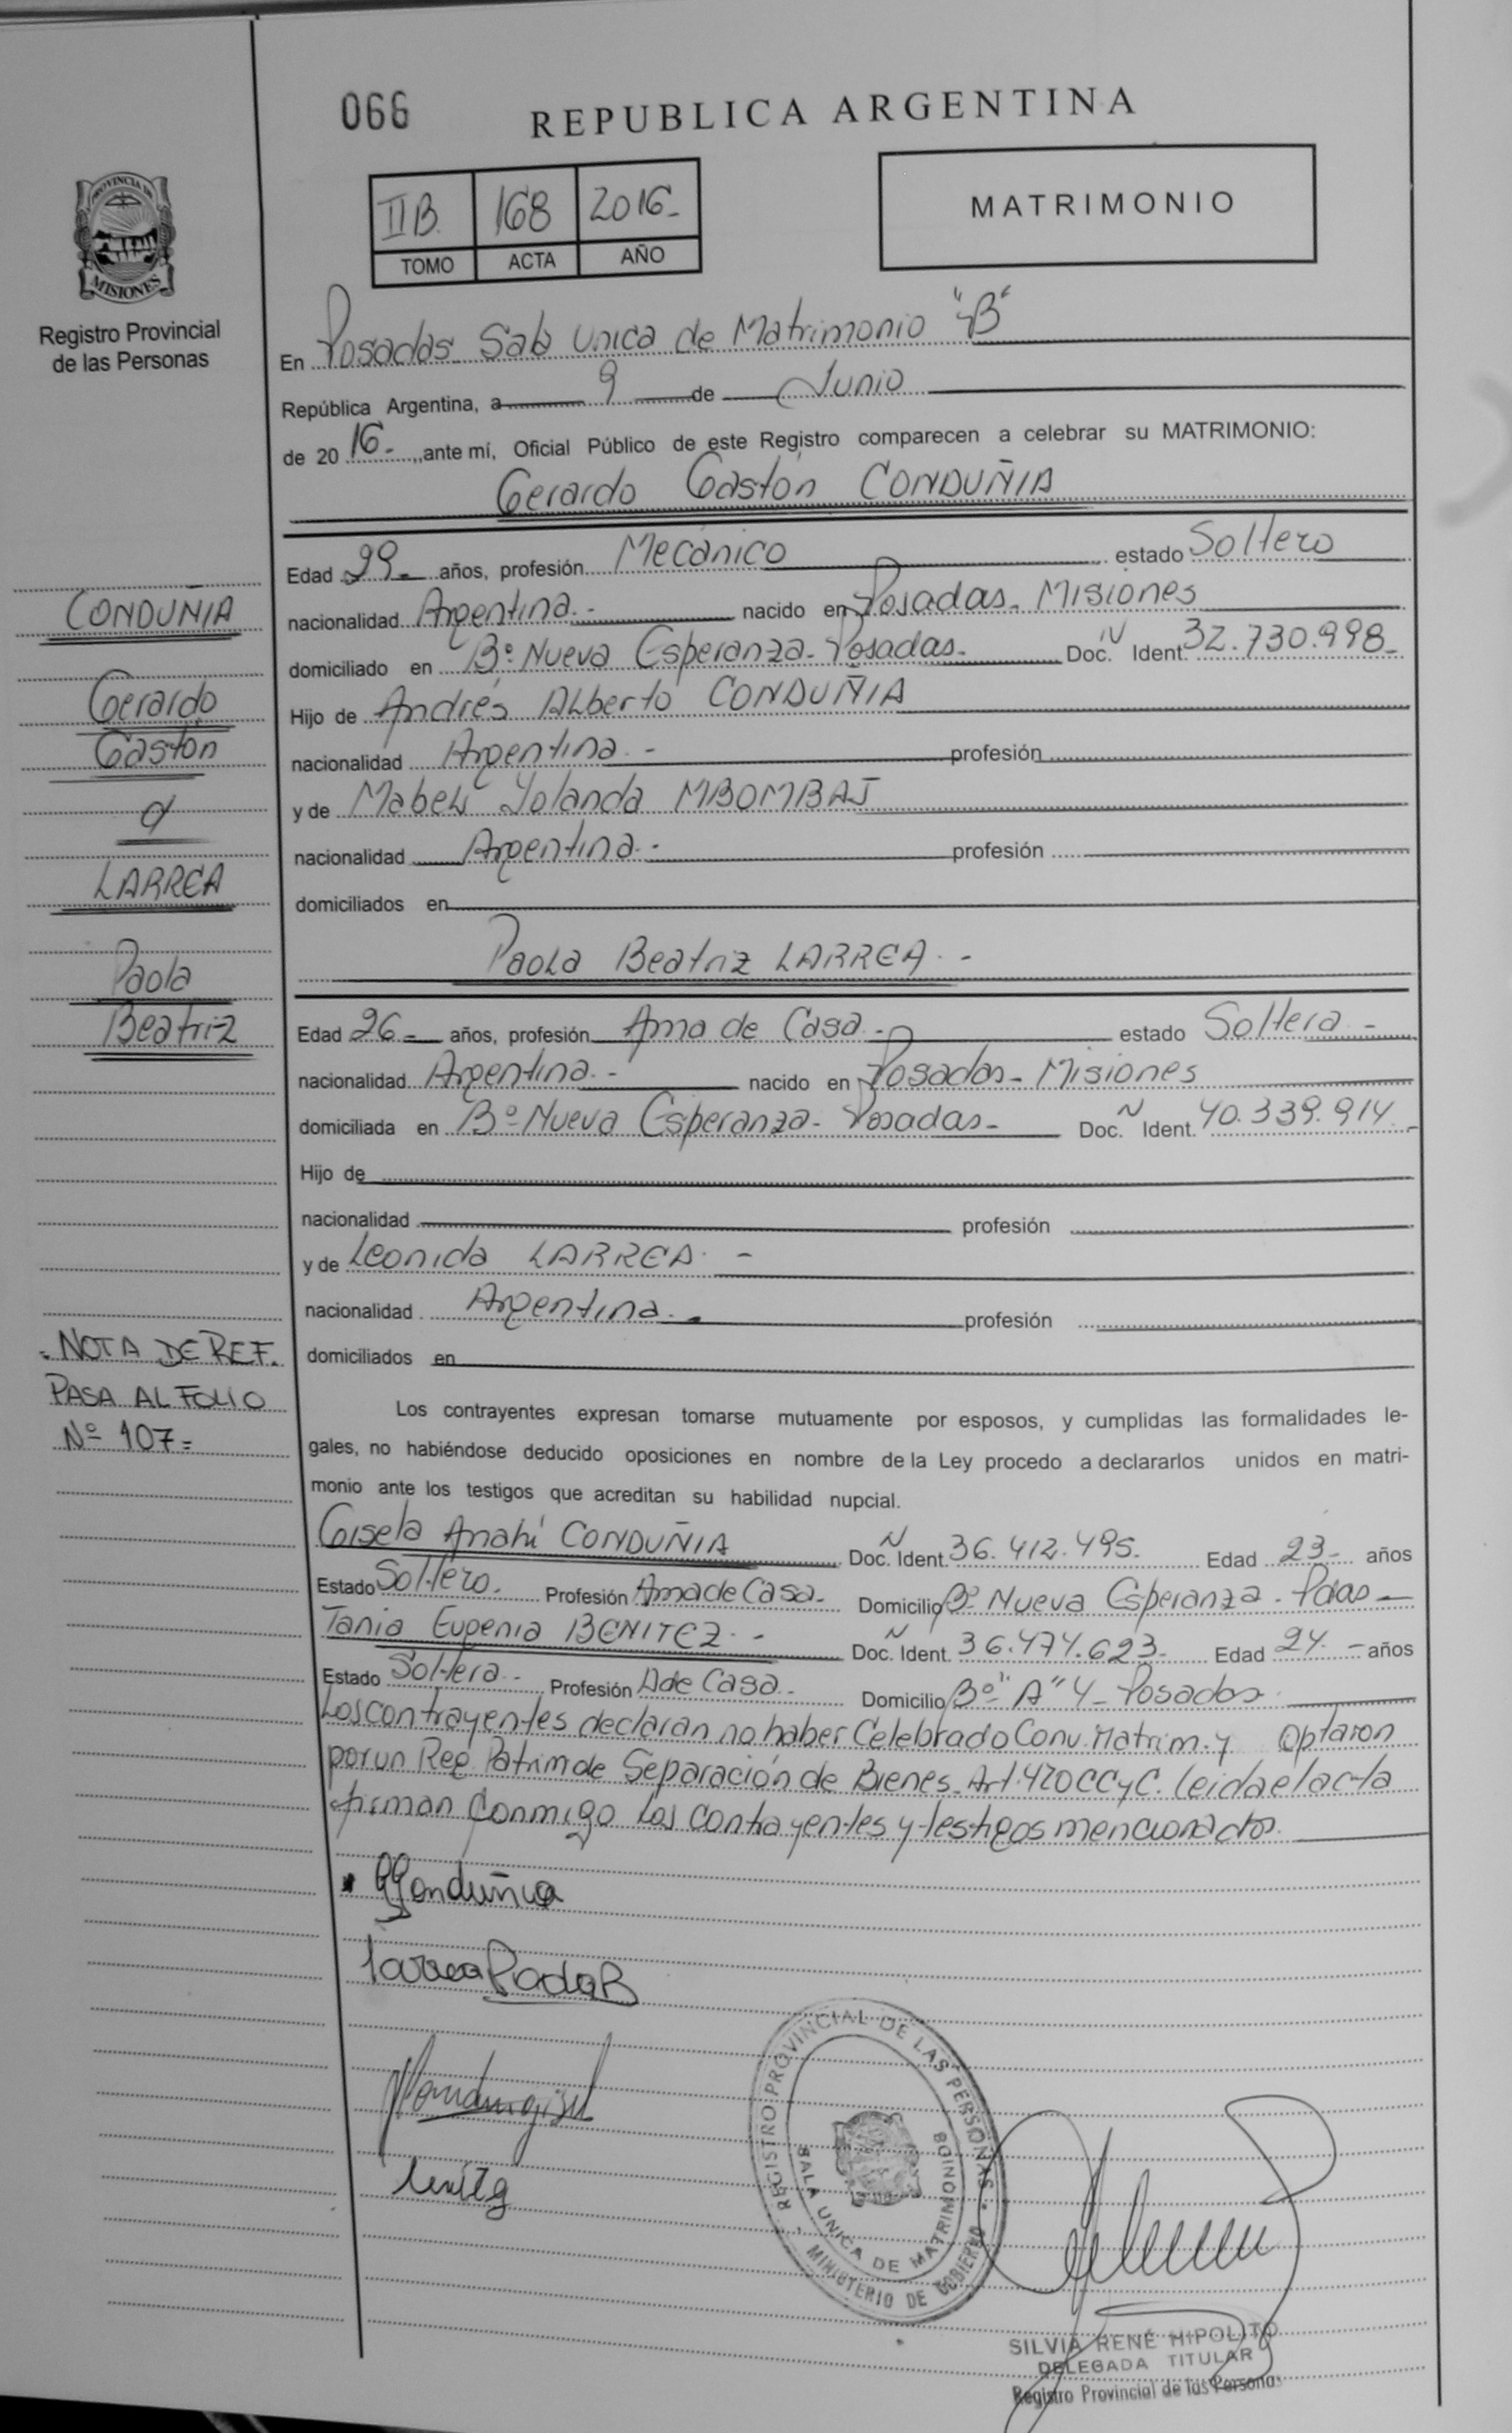 066
REPUBLICA ARGENTINA
IIB. 168 2016-
TOMO ACTA AÑO
MATRIMONIO
PROVINCIA DE
MISIONES
Registro Provincial
de las Personas
En Posadas Sala Unica de Matrimonio "B"
República Argentina, a 9 de Junio
de 2016-, ante mí, Oficial Público de este Registro comparecen a celebrar su MATRIMONIO:
Gerardo Gastón CONDUÑIA
Edad 29- años, profesión Mecánico estado Soltero
nacionalidad Argentina.- nacido en Posadas- Misiones
domiciliado en Bº Nueva Esperanza- Posadas- Doc. N Ident. 32.730.998-
Hijo de Andrés Alberto CONDUÑIA
nacionalidad Argentina.- profesión
y de Mabel Yolanda MBOMBAJ
nacionalidad Argentina.- profesión
domiciliados en
Paola Beatriz LARREA.-
Edad 26- años, profesión Ama de Casa.- estado Soltera-
nacionalidad Argentina.- nacido en Posadas- Misiones
domiciliada en Bº Nueva Esperanza- Posadas- Doc. N Ident. 40.339.914.-
Hijo de
nacionalidad profesión
y de Leonida LARREA.-
nacionalidad Argentina.- profesión
domiciliados en
Los contrayentes expresan tomarse mutuamente por esposos, y cumplidas las formalidades le-
gales, no habiéndose deducido oposiciones en nombre de la Ley procedo a declararlos unidos en matri-
monio ante los testigos que acreditan su habilidad nupcial.
Gisela Anahí CONDUÑIA Doc. N Ident. 36.412.495. Edad 23- años
Estado Soltero. Profesión Ama de Casa- Domicilio Bº Nueva Esperanza- Pdas-
Tania Eugenia BENITEZ.- Doc. N Ident. 36.474.623- Edad 24.- años
Estado Soltera- Profesión A de Casa- Domicilio Bº "A" 4- Posadas
Los contrayentes declaran no haber Celebrado Conv. Matrim. y Optaron
por un Reg. Patrim de Separación de Bienes- Art. 420 CCyC. Leida el acta
firman conmigo los contrayentes y testigos mencionados.
CONDUÑIA
Gerardo
Gastón
LARREA
Paola
Beatriz
- NOTA DE REF.
PASA AL FOLIO
Nº 107-
GGonduñia
Larrea Paola B
REGISTRO PROVINCIAL DE LAS PERSONAS
SALA UNICA DE MATRIMONIOS
MINISTERIO DE GOBIERNO
SILVIA RENÉ HIPOLITO
DELEGADA TITULAR
Registro Provincial de las Personas